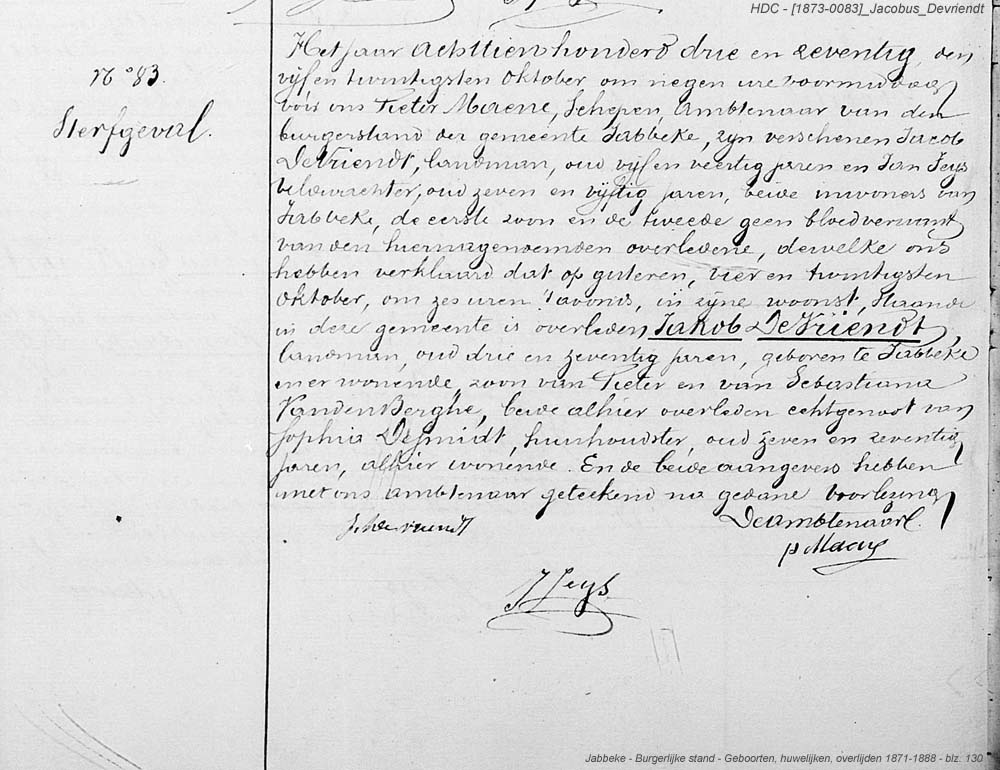 HDC - [1873-0083]_Jacobus_Devriendt
N° 83.
Sterfgeval.
Het jaar achttien honderd drie en zeventig, den
vijf en twintigsten Oktober om negen ure voormiddag
vóór ons Pieter Maene, Schepen, Ambtenaar van den
burgerstand der gemeente Jabbeke, zijn verschenen Jacob
DeVriendt, landman, oud vijf en veertig jaren en Jan Feys
veldwachter, oud zeven en vijftig jaren, beide inwoners van
Jabbeke, de eerste zoon en de tweede geen bloedverwant
van den hiernagenoemden overledene, dewelke ons
hebben verklaard dat op gisteren, vier en twintigsten
Oktober, om zes uren 's avonds, in zijne woonst, staande
in deze gemeente is overleden, Jakob DeVriendt,
landman, oud drie en zeventig jaren, geboren te Jabbeke
en er wonende, zoon van Pieter en van Sebastiana
VandenBerghe, beide alhier overleden echtgenoot van
Sophia Desmidt, huishoudster, oud zeven en zeventig
jaren, alhier wonende. En de beide aangevers hebben
met ons ambtenaar geteekend na gedane voorlezing
De ambtenaar.
J. Feys
Jabbeke - Burgerlijke stand - Geboorten, huwelijken, overlijden 1871-1888 - blz. 130